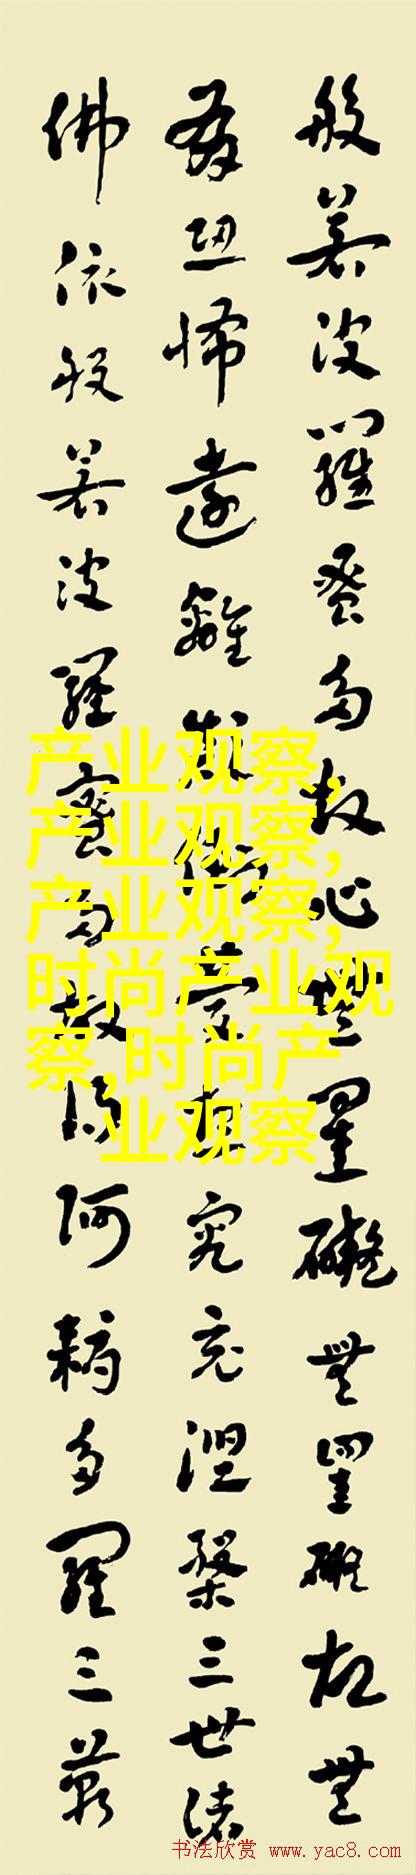 般若波羅蜜多故心無罣礙無罣礙故無
有恐怖遠離夢想究竟涅槃三世諸
佛依般若波羅蜜多故得阿耨多羅三藐
产业观察,
产业观察,
产业观察,
时尚产业观
察,时尚产
业观察
书法欣赏 www.yac8.com